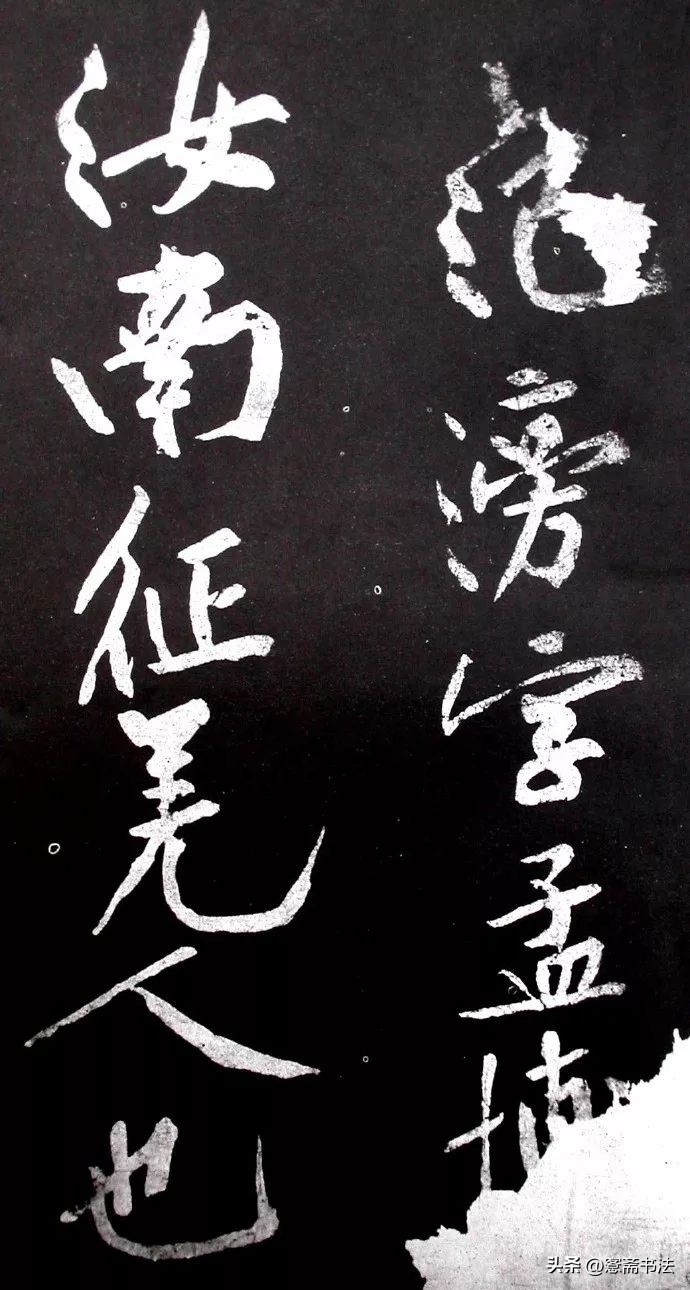 范滂字孟博
汝南征羌人也
头条 @斋书法